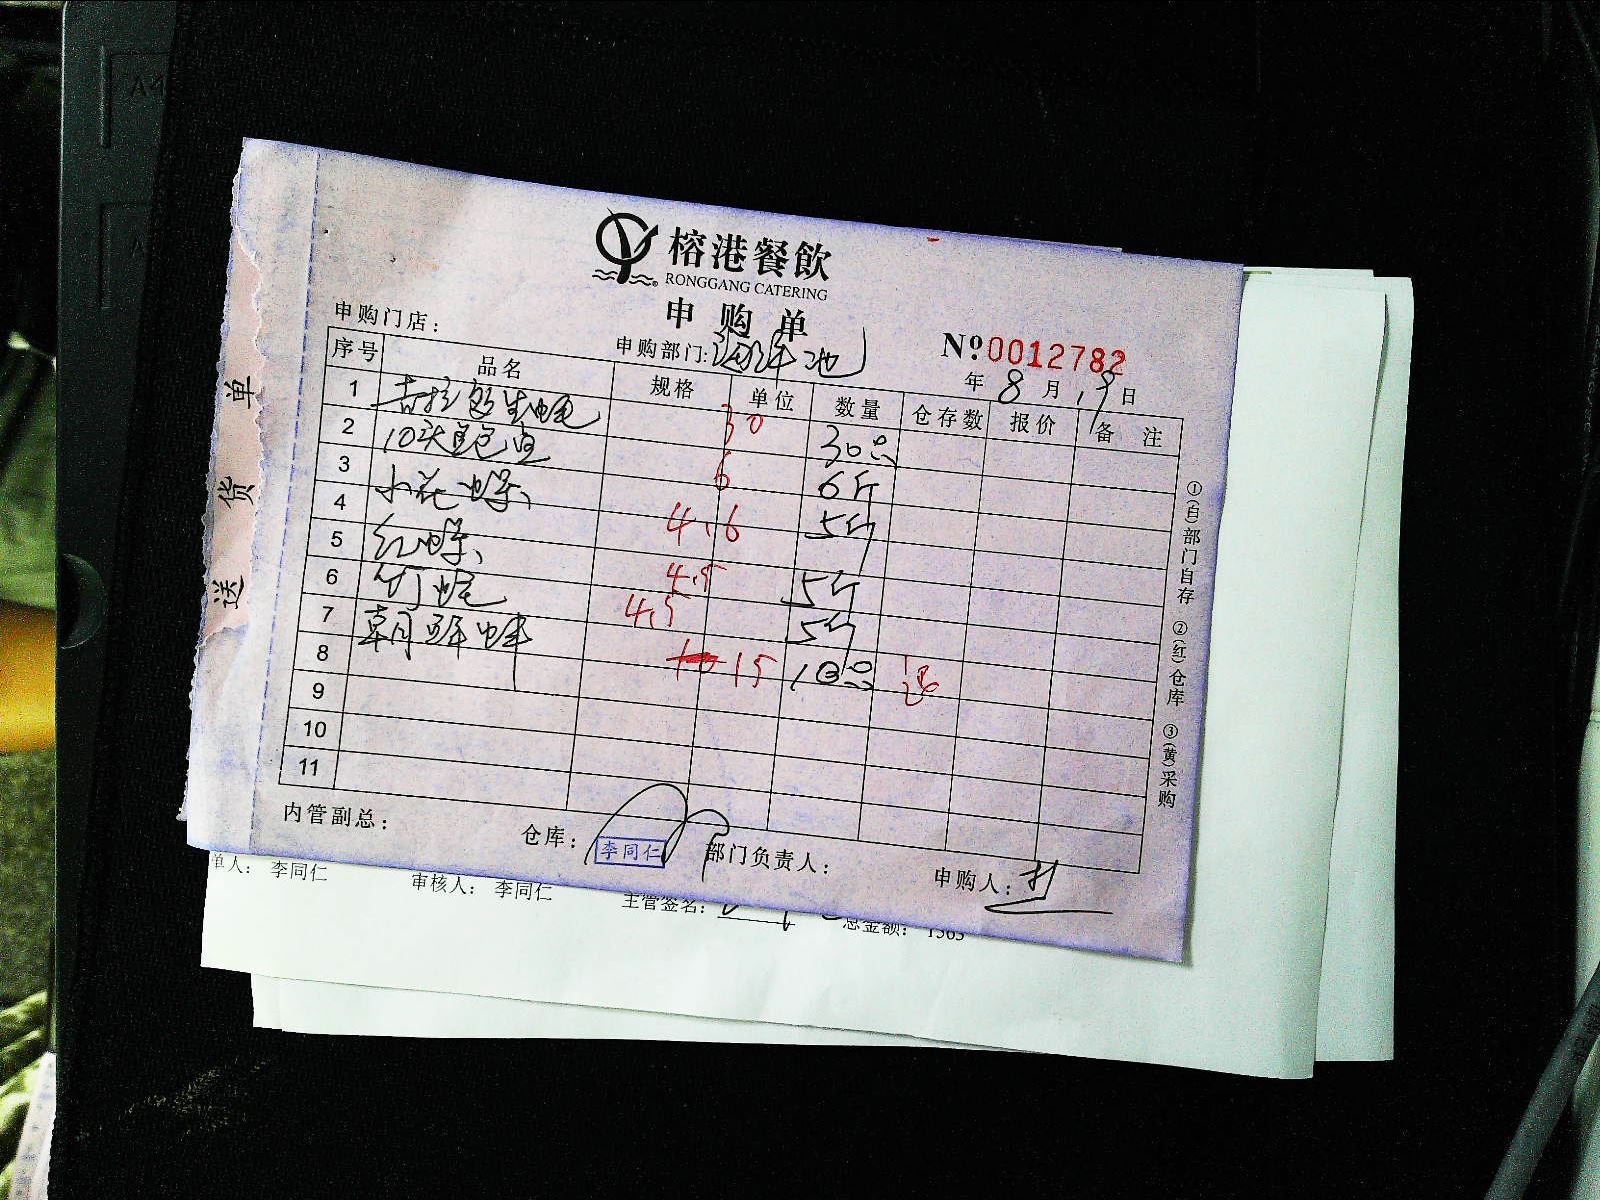 榕港餐飲
RONGGANG CATERING
申购单
申购门店：
申购部门：海鲜池
Nº 0012782
年 8 月 19 日
序号 品名 规格 单位 数量 仓存数 报价 备注
1 吉拉多生蚝 30 30只
2 10头鲍鱼 6 6斤
3 小花螺 4.6 5斤
4 红螺 4.5 5斤
5 竹蛏 4.5 5斤
6 朝鲜蚌 15 10只
7
8
9
10
11
内管副总：
仓库：
李同仁
部门负责人：
申购人：
①(白)部门自存 ②(红)仓库 ③(黄)采购
送货单
单人： 李同仁
审核人： 李同仁
主管签名：
总金额： 1563